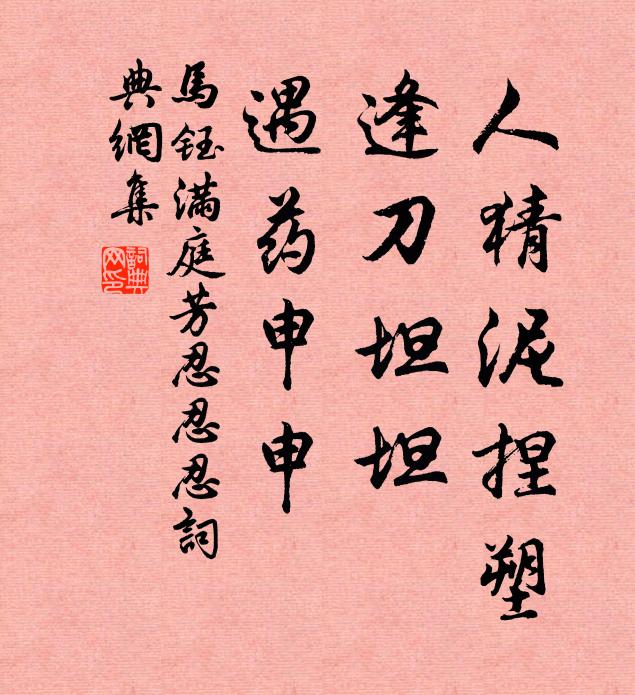 人猜泥捏塑
逢刀坦坦
遇药申申
馬鈺满庭芳忍忍忍詞
典網集
詞典网印